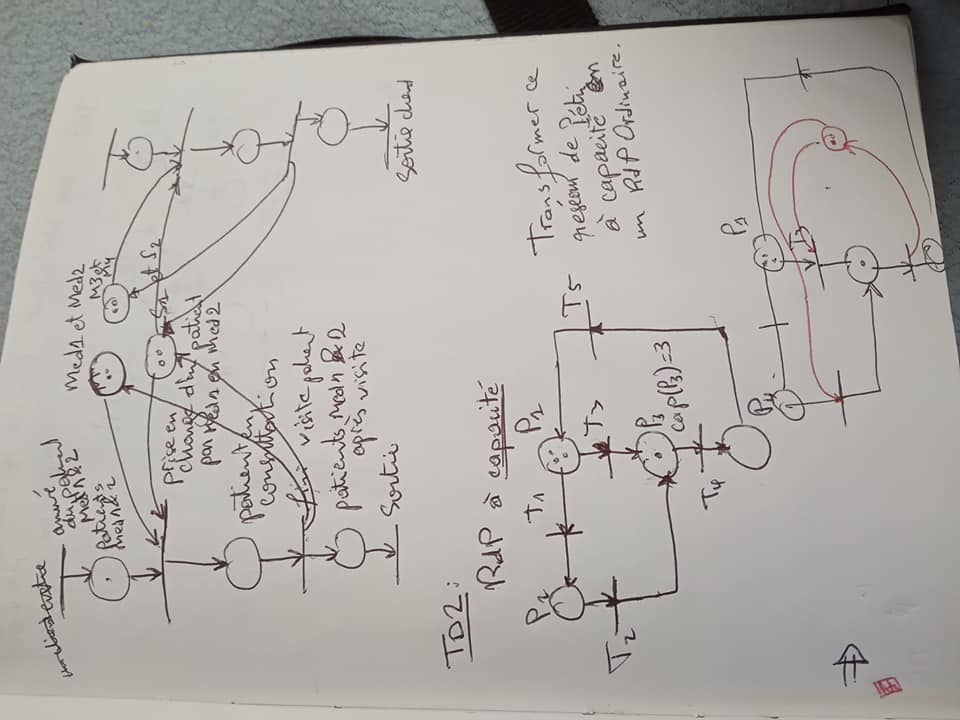 arrivé
Med1&2
patients
Med1&2
Med1 et Med2
M3 et
M4
S1 et S2
prise en
charge d'un patient
par Med1 ou Med2
patient en
consultation
fin visite patient
patients Med1&2
après visite
Sortie
Sortie
TD2:
RdP à capacité
P2
T1
P1
T2
T3
P3
cap(P3)=3
T4
T5
Transformer ce
réseau de Pétri
à capacité en
un RdP Ordinaire.
P1
T3